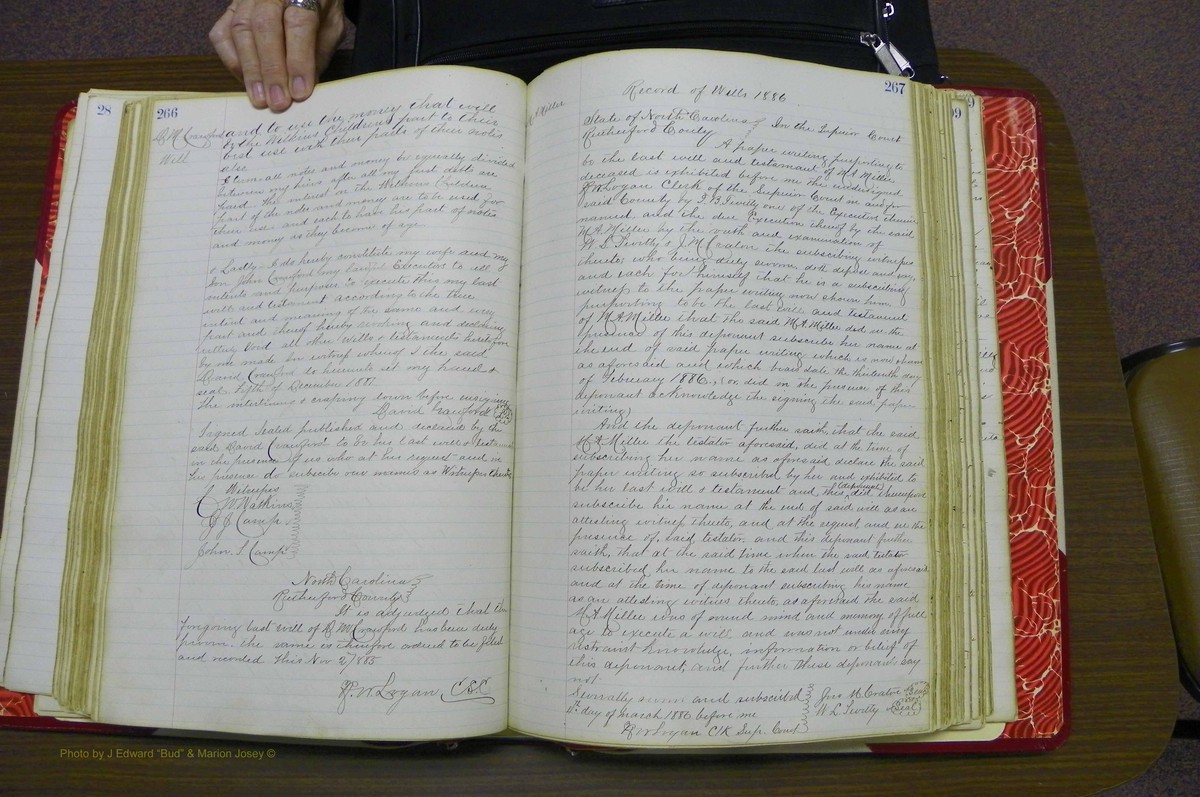 28
266
D. M. Crawford
Will
and to use the money that will
to the Wilkins Childrens part to their
best use with their parts of their notes
also
Item all notes and money be equally divided
between my heirs after all my just debts are
paid the interest on the Wilkins Children
part of the notes and money are to be used for
their use and each to have his part of notes
and money as they become of age
& Lastly I do hereby constitute my wife and my
son John Crawford my lawful Executors to all
intents and purposes to execute this my last
will and testament according to the true
intent and meaning of the same and every
part and thereof hereby revoking and declaring
utterly void all other Wills & testaments heretofore
by me made In witness whereof I the said
David Crawford do hereunto set my hand &
seal fifth of December 1881
The interlining & scraping lower before assigning
David Crawford Seal
Signed Sealed published and declared by the
said David Crawford to be his last will & testament
in the presence of us who at his request and in
his presence do subscribe our names as Witnesses thereto
Witnesses
W Watkins
J J Camp
John S Camp
North Carolina
Rutherford County
It is adjudged that the
forgoing last will of D. M. Crawford has been duly
proven the same is therefore ordered to be filed
and recorded this Nov 2/1885
R. W. Logan, C.S.C
267
Record of Wills 1886
M A Miller
State of North Carolina In the Superior Court
Rutherford County
A paper writing purporting to
be the last will and testament of M A Miller
deceased is exhibited before me the undersigned
R W Logan Clerk of the Superior Court in and for
said County by J. B. Twitty one of the Executors therein
named and the due Execution thereof by the said
M. A. Miller by the oath and examination of
W L Twitty & J. M. Craton the subscribing witnesses
thereto; who being duly sworn doth depose and say,
and each for himself that he is a subscribing
witness to the paper writing now shown him
purporting to be the last will and testament
of M A Miller that the said M. A Miller did in the
presence of this deponent subscribe her name at
the end of said paper writing which is now shown
as aforesaid and which bears date the thirteenth day
of February 1886, (or did in the presence of this
deponant acknowledge the signing the said paper
writing)
And the deponent further saith, that the said
M. A Miller the testator aforesaid, did at the time of
subscribing her name as aforesaid declare the said
paper writing so subscribed by her and exhibited to
be her last will & testament and this (deponent) did thereupon
subscribe his name at the end of said will as an
attesting witness thereto, and at the request, and in the
presence of, said testator, and this deponant further
saith, that at the said time when the said testator
subscribed her name to the said last will as aforesaid
and at the time of deponant subscribing his name
as an attesting witness thereto, as aforesaid the said
M. A Miller was of sound mind and memory of full
age to execute a will and was not under any
restraint knowledge, information or belief of
this deponent, and further these deponants say
not.
Severally sworn and subscribed
day of march 1886 before me
R W Logan Clk Supr. Court
Jno M. Craton Seal
W L Twitty Seal
Photo by J Edward "Bud" & Marion Josey ©